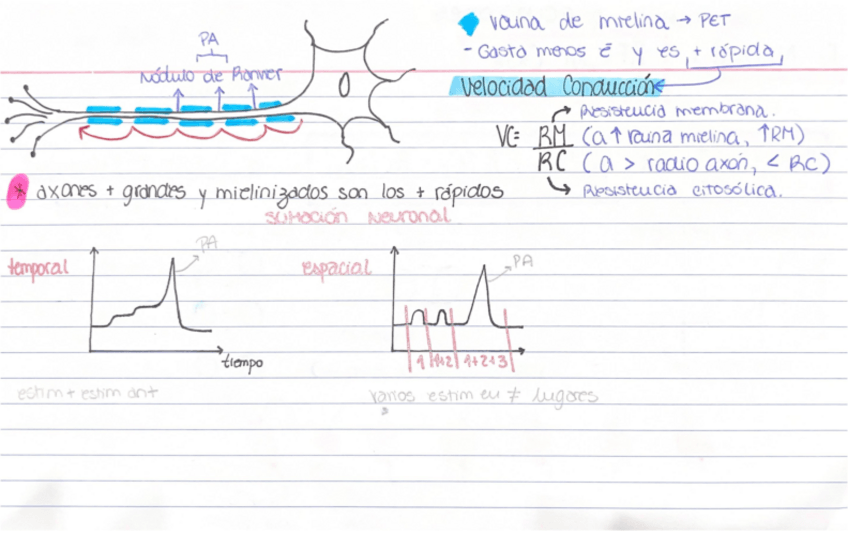 PA
Nódulo de Ranvier
vaina de mielina → PET
- Gasta menos ē y es + rápida
Velocidad Conducción
Resistencia membrana.
VC = RM (a ↑ vaina mielina, ↑RM)
RC (a > radio axón, < RC)
Resistencia citosólica.
* axones + grandes y mielinizados son los + rápidos
SUMACIÓN NEURONAL
temporal
PA
tiempo
estim + estim ant
espacial
PA
1 1+2 1+2+3
varios estim en ≠ lugares